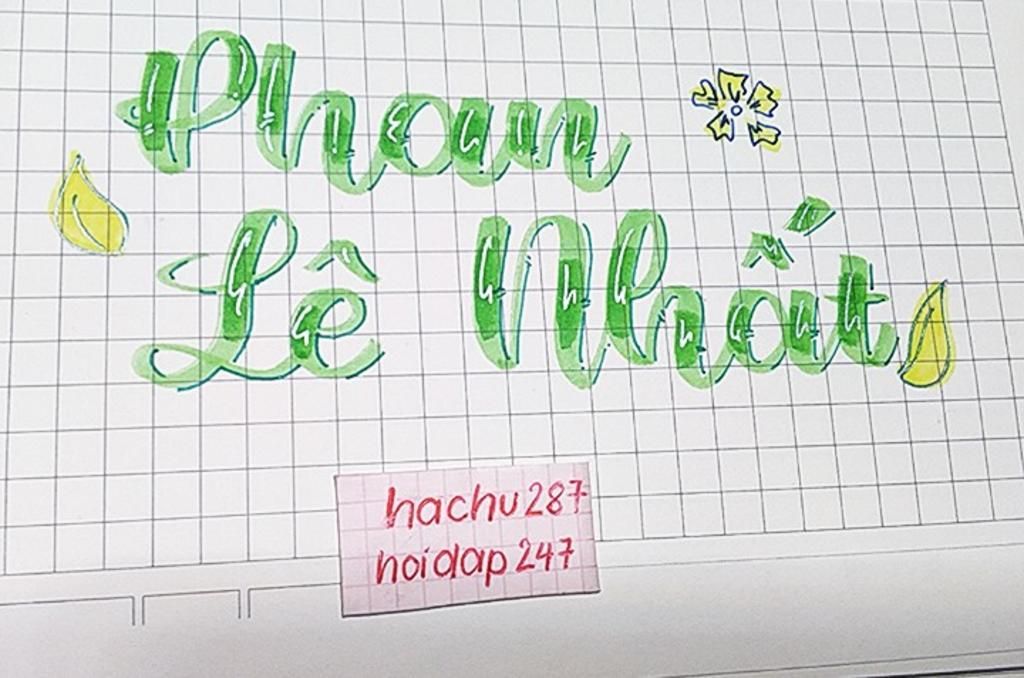 Phan
Lê Nhất
hachu287
hoidap247